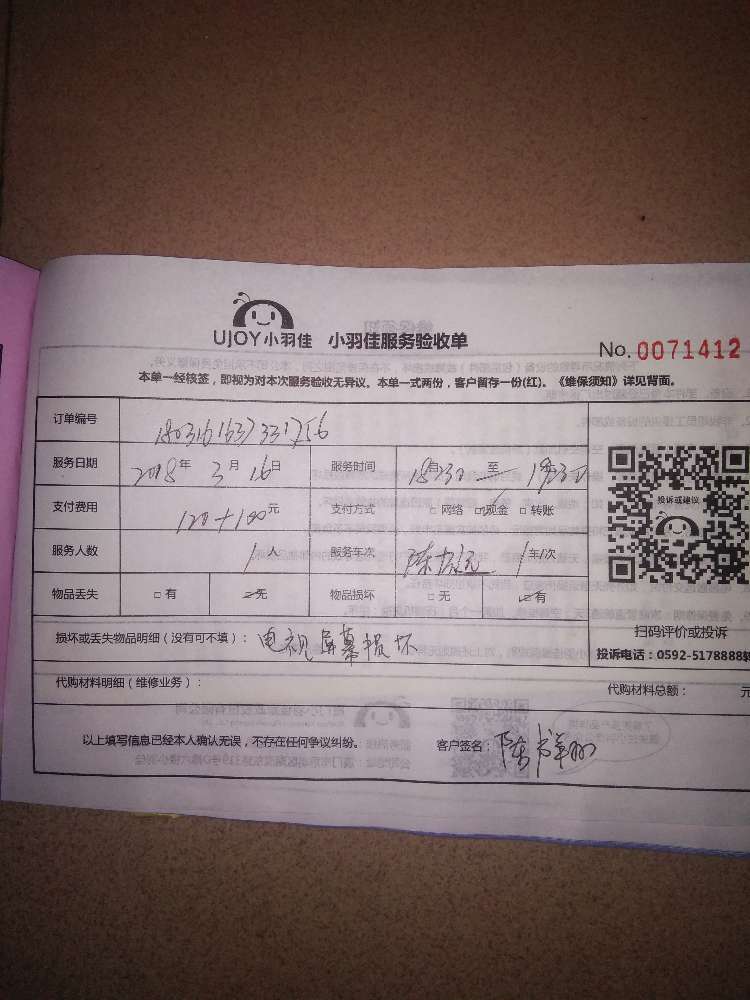 UJOY小羽佳 小羽佳服务验收单
No. 0071412
本单一经核签，即视为对本次服务验收无异议。本单一式两份，客户留存一份(红)。《维保须知》详见背面。
订单编号
服务日期 2018年 3月 16日 服务时间 至
支付费用 120+100元 支付方式 □ 网络 □现金 □ 转账
服务人数 1人 服务车次 1车/次
物品丢失 □ 有 □无 物品损坏 □ 无 □有
投诉或建议
扫码评价或投诉
损坏或丢失物品明细（没有可不填）： 电视屏幕损坏
投诉电话：0592-5178888转
代购材料明细（维修业务）： 代购材料总额： 元
以上填写信息已经本人确认无误，不存在任何争议纠纷。 客户签名：